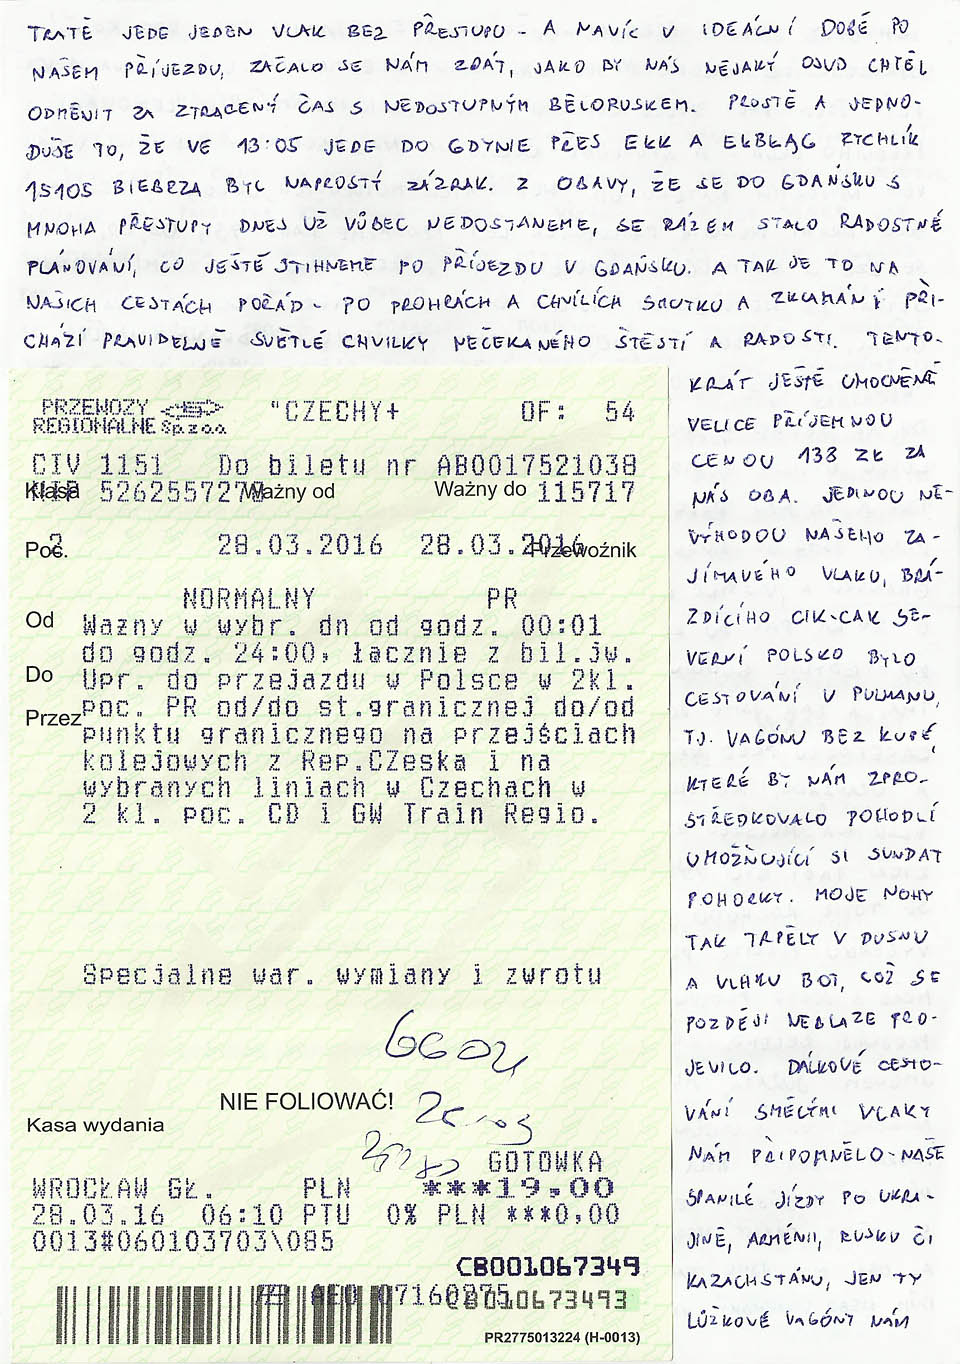 TRATĚ JEDE JEDEN VLAK BEZ PŘESTUPU - A NAVÍC V IDEÁLNÍ DOBĚ PO
NAŠEM PŘÍJEZDU, ZAČALO SE NÁM ZDÁT, JAKO BY NÁS NĚJAKÝ OSUD CHTĚL
ODMĚNIT ZA ZTRACENÝ ČAS S NEDOSTUPNÝM BĚLORUSKEM. PROSTĚ A JEDNO-
DUŠE TO, ŽE VE 13:05 JEDE DO GDYNIE PŘES EŁK A ELBLĄG RYCHLÍK
15105 BIEBRZA BYL NAPROSTÝ ZÁZRAK. Z OBAVY, ŽE SE DO GDAŃSKU S
MNOHA PŘESTUPY DNES UŽ VŮBEC NEDOSTANEME, SE RÁZEM STALO RADOSTNÉ
PLÁNOVÁNÍ, CO JEŠTĚ STIHNEME PO PŘÍJEZDU V GDAŃSKU. A TAK JE TO NA
NAŠICH CESTÁCH POŘÁD - PO PROHRÁCH A CHVÍLÍCH SMUTKU A ZKLAMÁNÍ PŘI-
CHÁZÍ PRAVIDELNĚ SVĚTLÉ CHVILKY NEČEKANÉHO ŠTĚSTÍ A RADOSTI. TENTO-
KRÁT JEŠTĚ UMOCNĚNÉ
VELICE PŘÍJEMNOU
CENOU 138 ZŁ ZA
NÁS OBA. JEDINOU NE-
VÝHODOU NAŠEHO ZA-
JÍMAVÉHO VLAKU, BRÁ-
ZDÍCÍHO CIK-CAK SE-
VERNÍ POLSKO BYLO
CESTOVÁNÍ V PULMANU,
TJ. VAGÓNU BEZ KUPÉ,
KTERÉ BY NÁM ZPRO-
STŘEDKOVALO POHODLÍ
UMOŽŇUJÍCÍ SI SUNDAT
POHORKY. MOJE NOHY
TAK TRPĚLY V DUSNU
A VLHKU BOT, COŽ SE
POZDĚJI NEBLAZE PRO-
JEVILO. DÁLKOVÉ CESTO-
VÁNÍ SMĚLÝMI VLAKY
NÁM PŘIPOMNĚLO NAŠE
SPANILÉ JÍZDY PO UKRA-
JINĚ, ARMÉNII, RUSKU ČI
KAZACHSTÁNU, JEN TY
LŮŽKOVÉ VAGÓNY NÁM
PRZEWOZY
REGIONALNE Sp.z o.o. "CZECHY+ OF: 54
CIV 1151 Do biletu nr AB0017521038
Klasa NIP 5262557278 Ważny od Ważny do 115717
Poc. 2 28.03.2016 28.03.2016 Przewoźnik
NORMALNY PR
Od
Ważny w wybr. dn od godz. 00:01
do godz. 24:00, łacznie z bil.jw.
Do
Upr. do przejazdu w Polsce w 2kl.
Przez
poc. PR od/do st.granicznej do/od
punktu granicznego na przejściach
kolejowych z Rep.CZeska i na
wybranych liniach w Czechach w
2 kl. poc. CD i GW Train Regio.
Specjalne war. wymiany i zwrotu
NIE FOLIOWAĆ!
Kasa wydania
GOTOWKA
WROCŁAW GŁ. PLN ***19,00
28.03.16 06:10 PTU 0% PLN ***0,00
0013#060103703\085
CB001067349
CB010673493
PR2775013224 (H-0013)